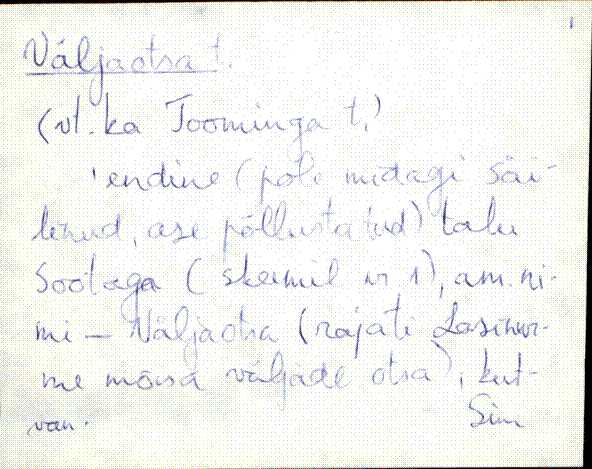 1
Väljaotsa t.
(vt. ka Toominga t.)
'endine (pole midagi säi-
linud, ase põllustatud) talu
Sootaga (skeemil nr 1), am. ni-
mi - Väljaotsa (rajati Lasinur-
me mõisa väljade otsa), kut-
van. Sim